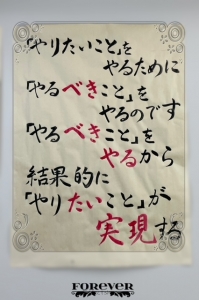 「やりたいこと」を
やるために
「やるべきこと」を
やるのです
「やるべきこと」を
やるから
結果的に
「やりたいこと」が
実現する
FOREVER